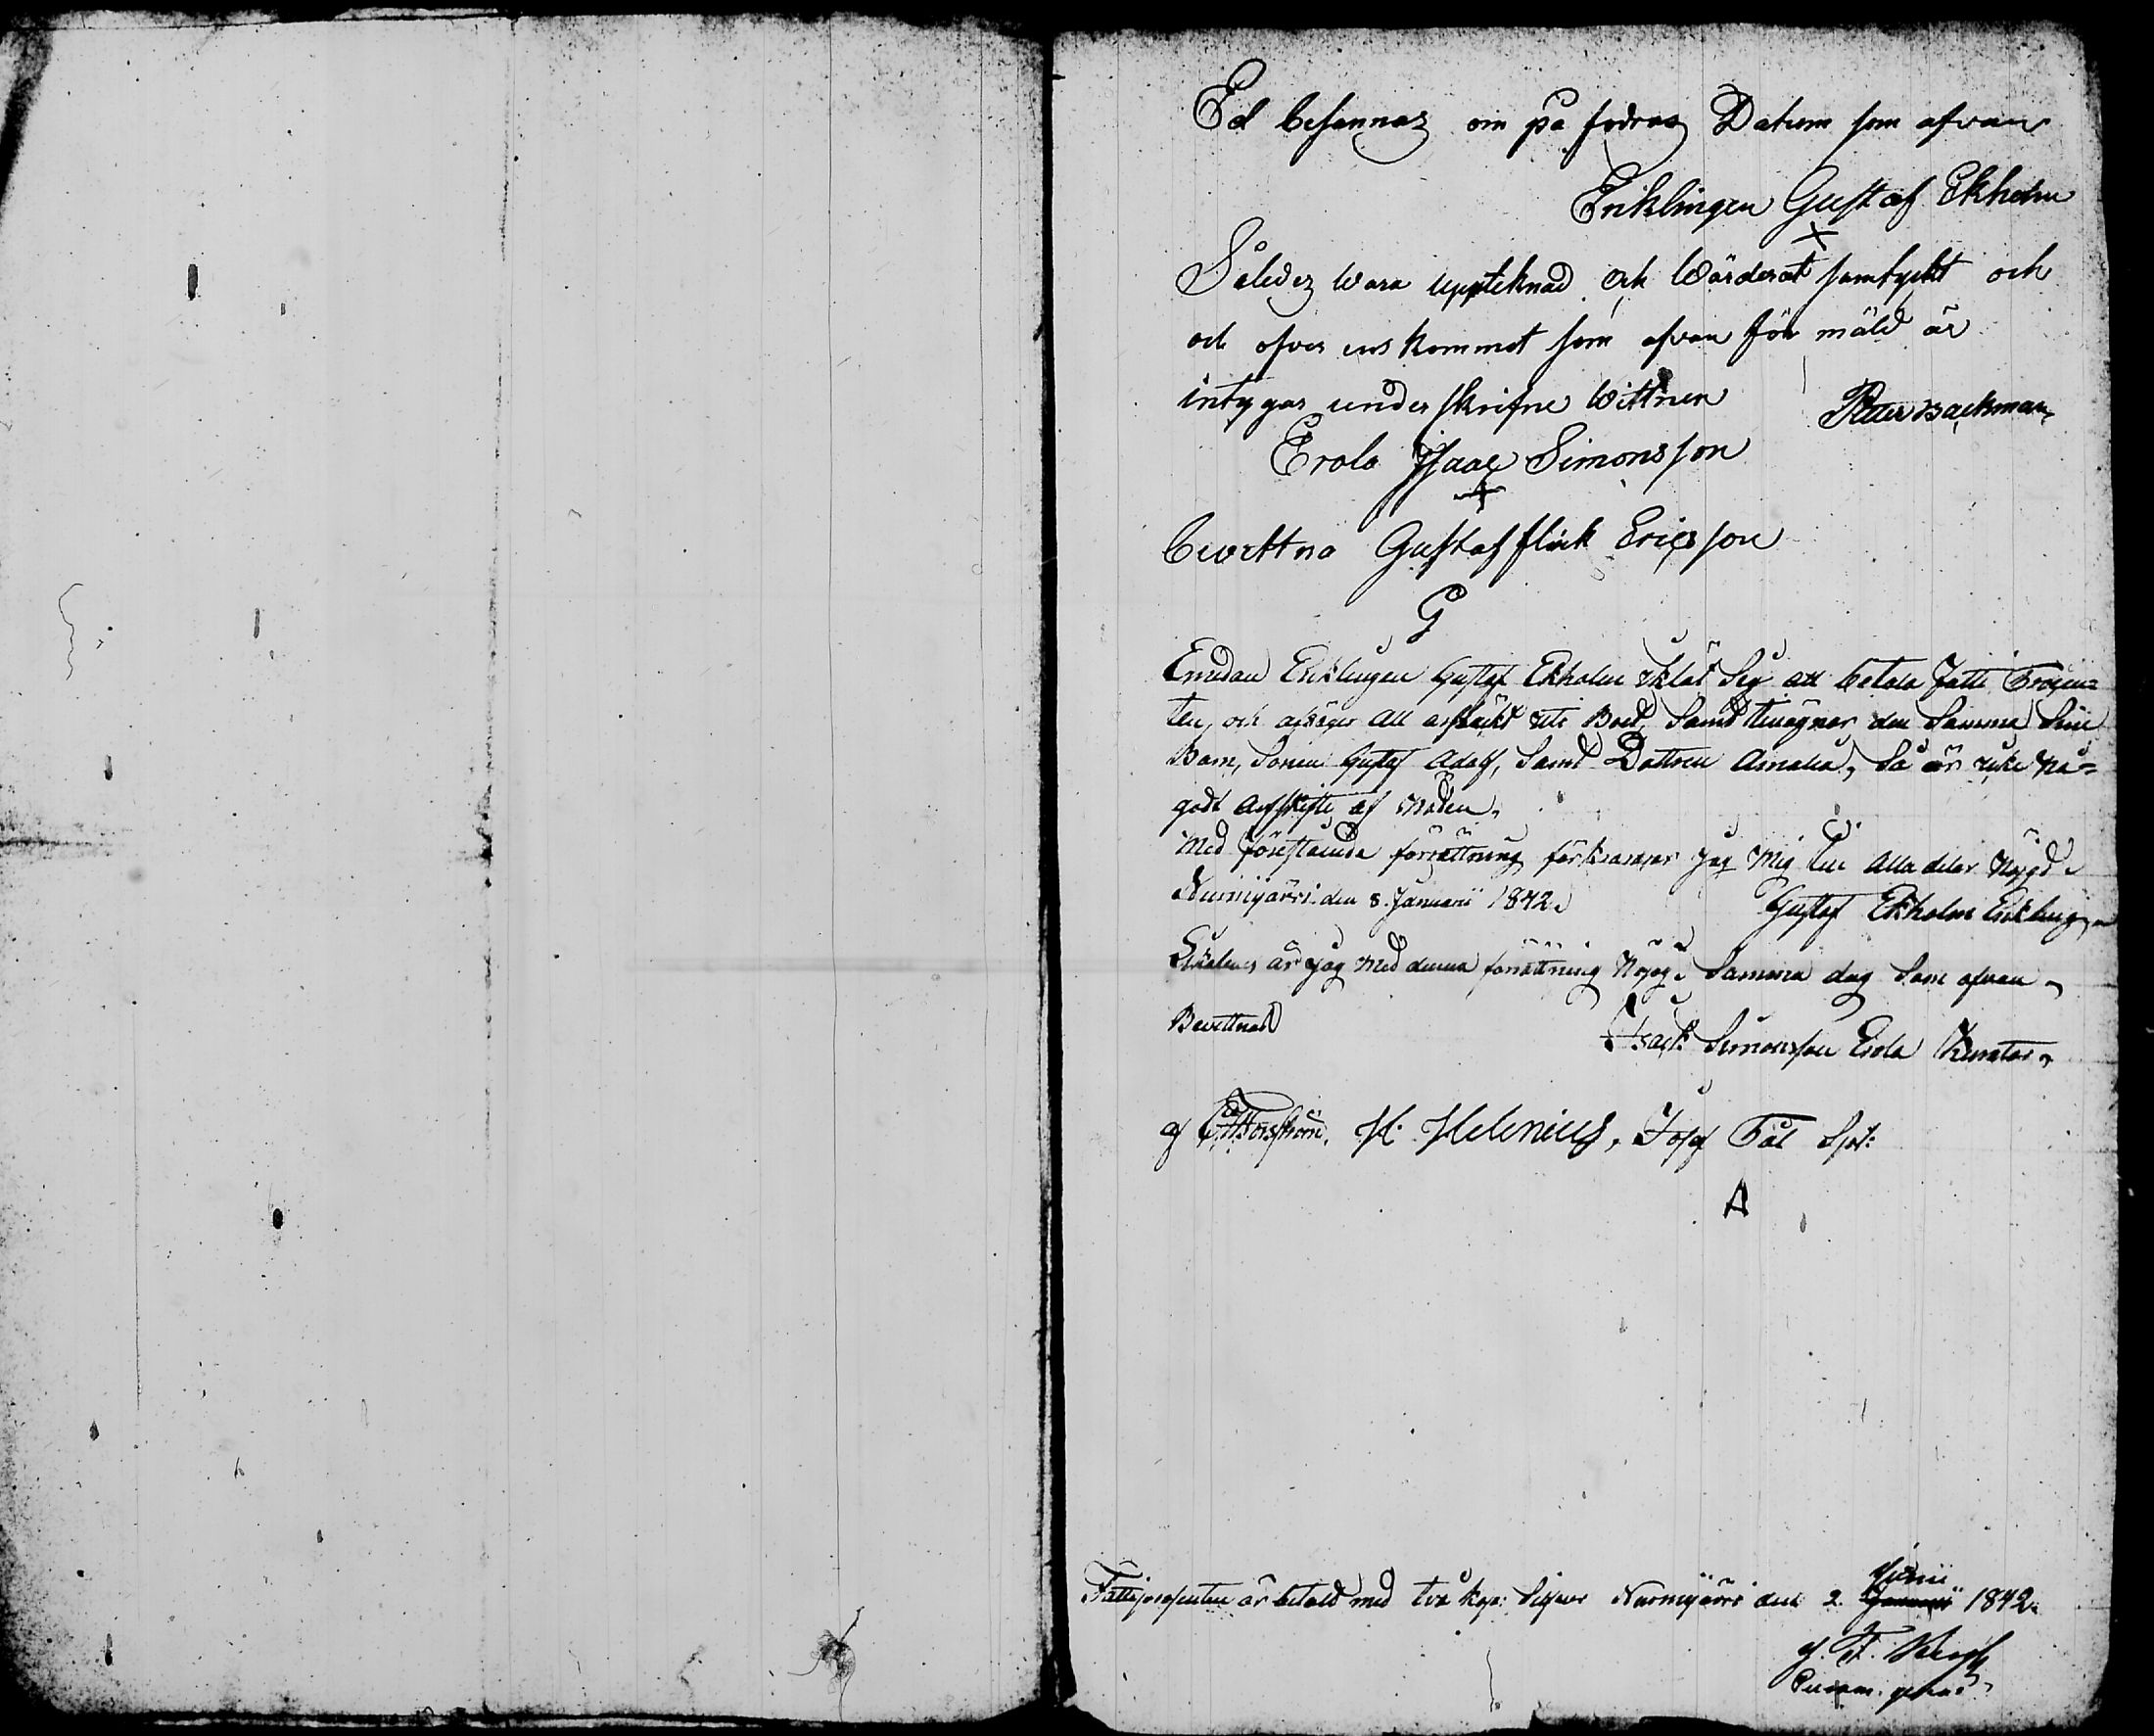 Ed besannas om på fodras Datum som ofvan
Enklingen Gustaf Ekholm
X
Således vara uppteknad och Wärderat samtyckt och
och öfver ens kommet som ofvan för mäld är
intygar under skrifne Wittnen Petter Backman
Erola Isaac Simonsson
+
bewittna Gustaf flink Ericsson
G
Emedan Enklingen Gustaf Ekholm iklät Sig att betala fatti Procen-
ten, och afsäger all afsikt uti Boet, Samt tilägnar den Samma Sine
Barn, Sonen Gustaf Adolf, Samt Dottren Amalia, Så är icke nå-
godt arfskifte af nöden.
Med förestående förrättning förklarar jag mig till alla delar Nöjgd.
Nurmijärvi den 8 Januarii 1842. Gustaf Ekholm Enkling
Likaledes är jag med denna förrättning Nöjgd. Samma dag Som ofvan.
Bevittnad Isack Simonsson Erola Kurator.
af Forsström, H. Helenius, Josef Påt Spt:
A
Fattigprosenten är betald med två kop: Silfver Nurmijärvi den 2. Junii Januarii 1842.
F.